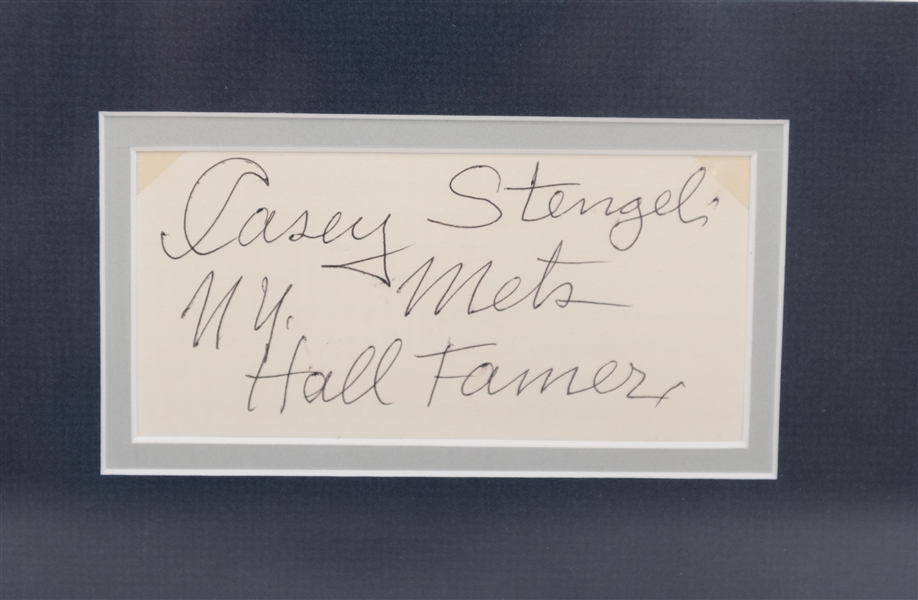 Casey Stengel.
NY. Mets
Hall Famer.